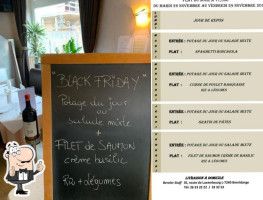 "BLACK FRIDAY"
Potage du jour
ou
salade mixte
+
FILET de SAUMON
crème basilic
Riz + légumes
DU MARDI 25 NOVEMBRE AU VENDREDI 29 NOVEMBRE
JOUR DE REPOS
ENTRÉE : POTAGE DU JOUR OU SALADE MIXTE
PLAT : SPAGHETTI
ENTRÉE : POTAGE DU JOUR OU SALADE MIXTE
PLAT : CUISSE DE POULET
RIZ & LÉGUMES
ENTRÉE : POTAGE DU JOUR OU SALADE MIXTE
PLAT : GRATIN DE PÂTES
ENTRÉE : POTAGE DU JOUR OU SALADE MIXTE
PLAT : FILET DE SAUMON CRÈME DE BASILIC
RIZ & LÉGUMES
LIVRAISON À DOMICILE